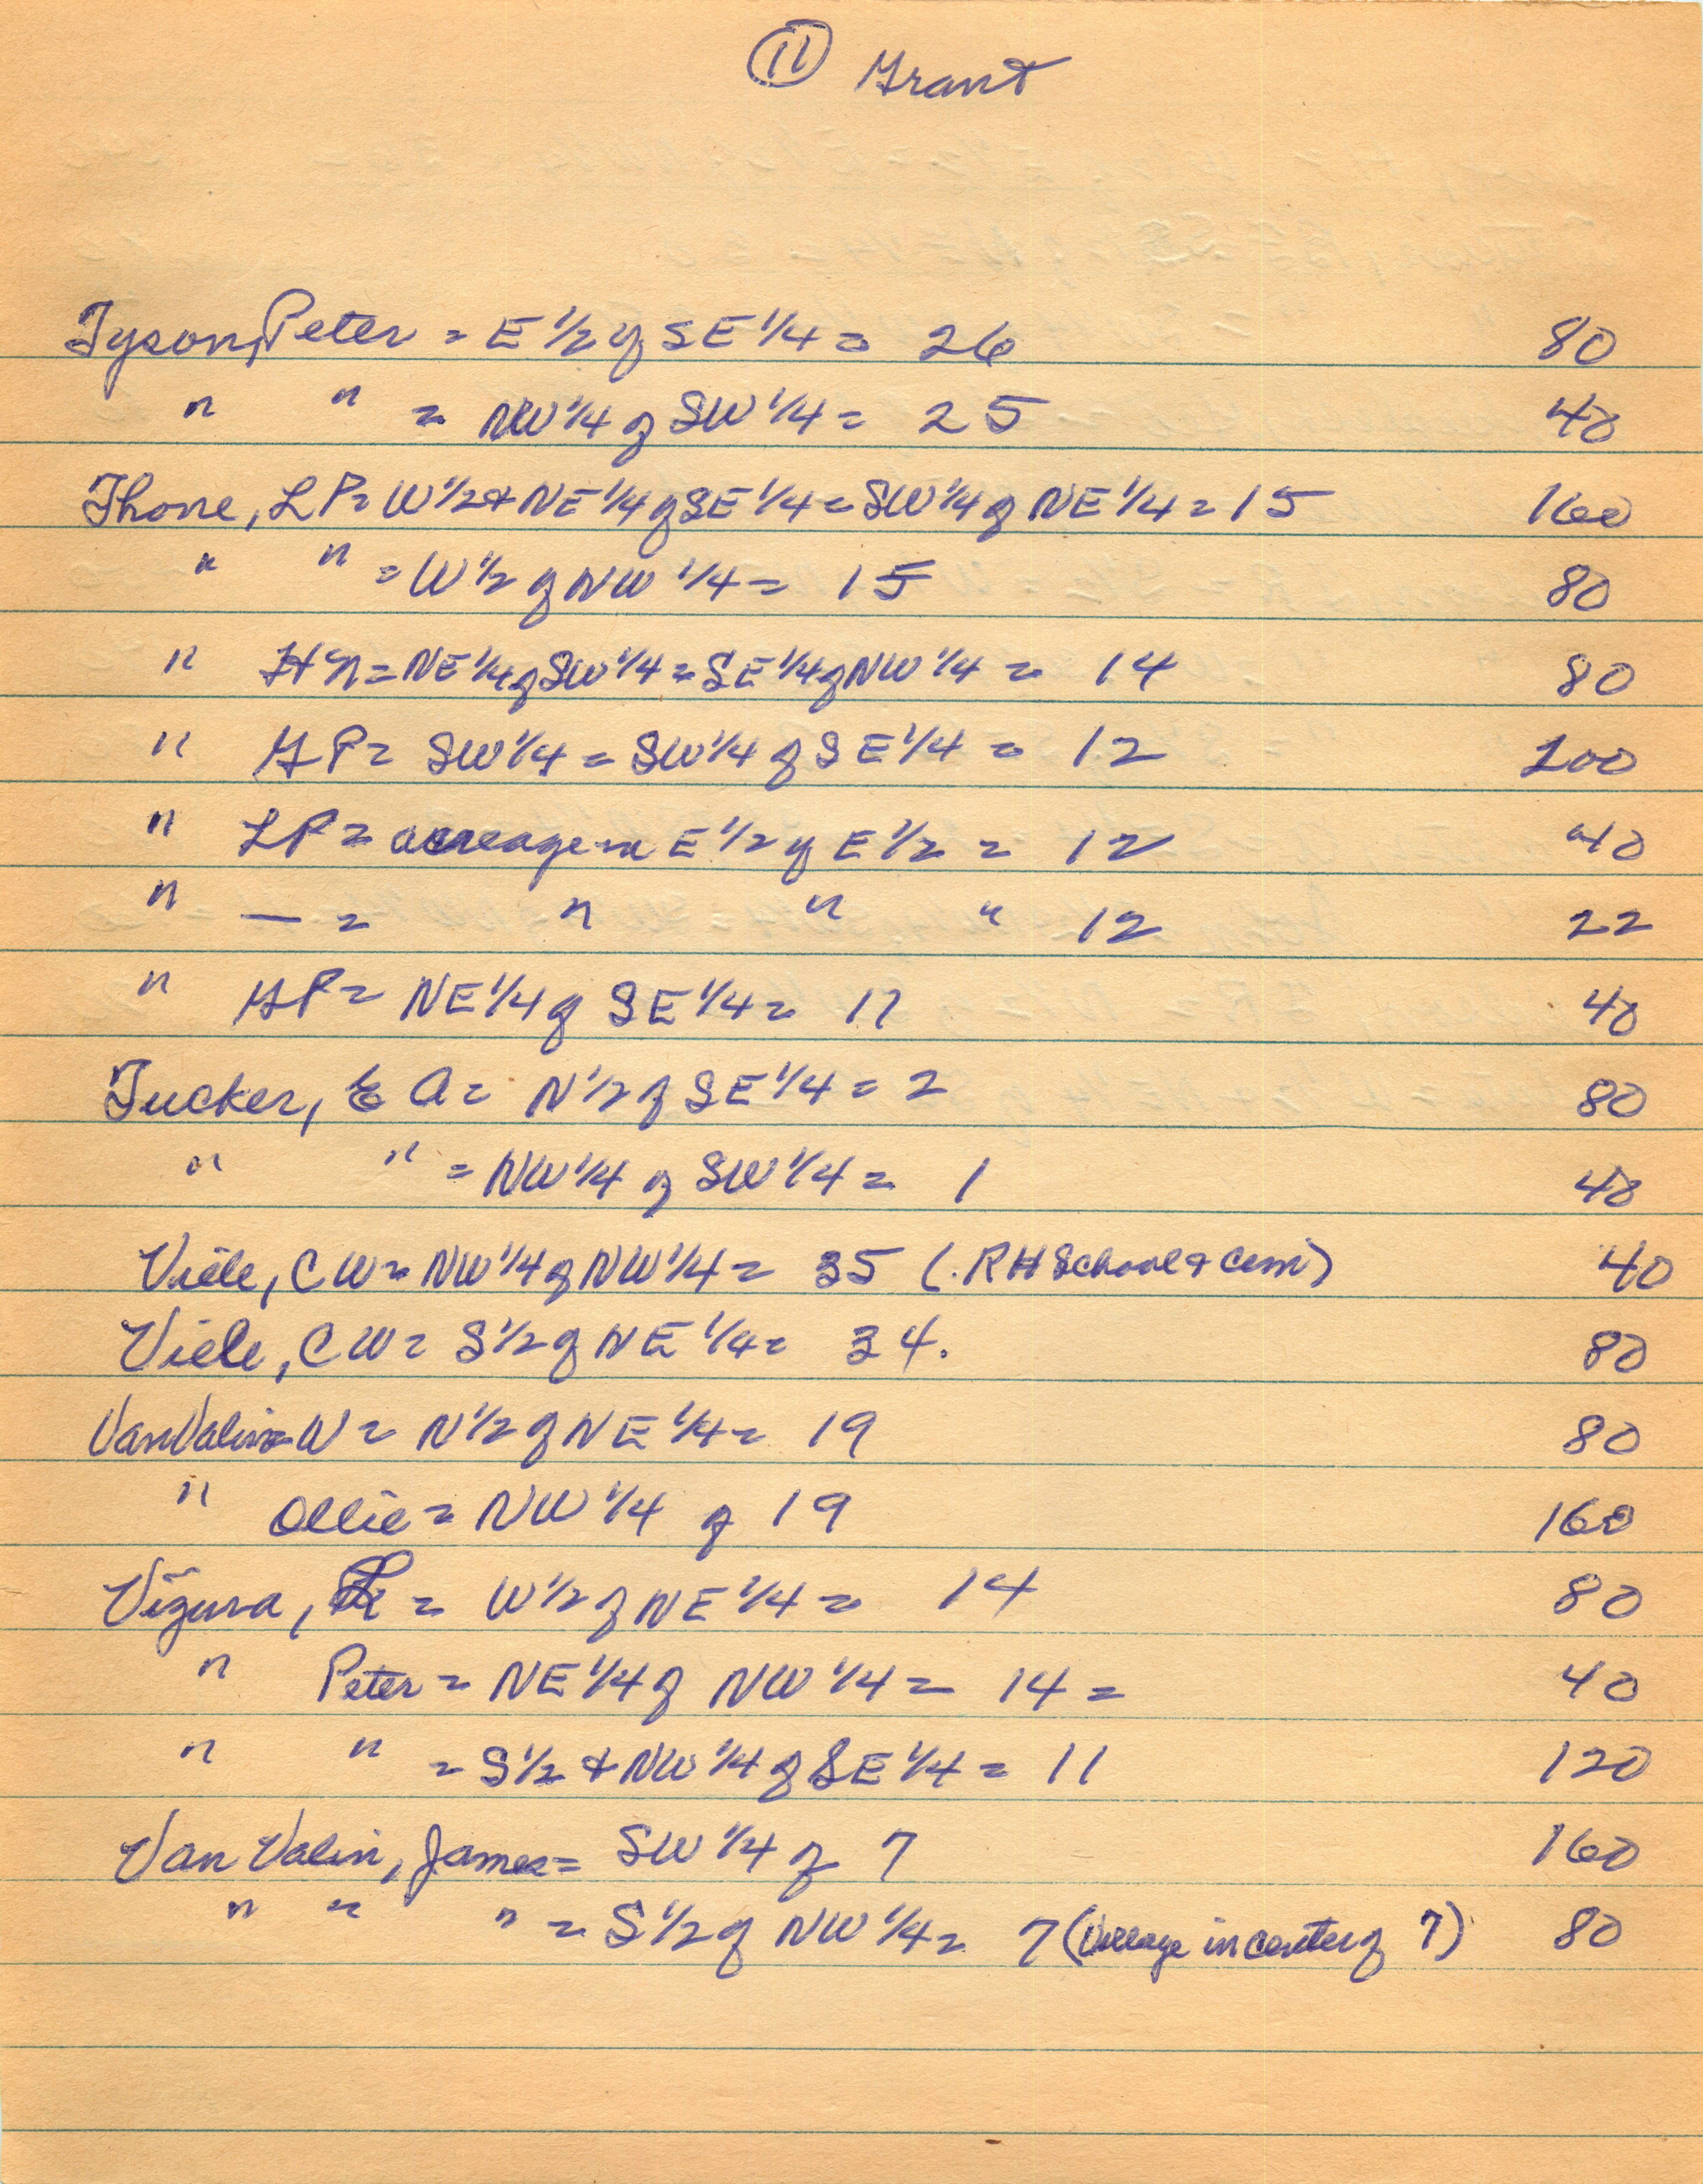 (11) Grant
Tyson, Peter = E 1/2 of SE 1/4 = 26 80
" " = NW 1/4 of SW 1/4 = 25 40
Thone, LP = W 1/2 & NE 1/4 of SE 1/4 = SW 1/4 of NE 1/4 = 15 160
" " = W 1/2 of NW 1/4 = 15 80
" HN = NE 1/4 of SW 1/4 = SE 1/4 of NW 1/4 = 14 80
" GP = SW 1/4 = SW 1/4 of SE 1/4 = 12 200
" LP = acreage in E 1/2 of E 1/2 = 12 40
" — = " " " 12 22
" GP = NE 1/4 of SE 1/4 = 11 40
Tucker, E A = N 1/2 of SE 1/4 = 2 80
" " = NW 1/4 of SW 1/4 = 1 40
Viele, CW = NW 1/4 of NW 1/4 = 35 (RH School & Cem) 40
Viele, CW = S 1/2 of NE 1/4 = 34. 80
VanValin = W = N 1/2 of NE 1/4 = 19 80
" Ollie = NW 1/4 of 19 160
Vizina, = W 1/2 of NE 1/4 = 14 80
" Peter = NE 1/4 of NW 1/4 = 14 = 40
" " = S 1/2 & NW 1/4 of SE 1/4 = 11 120
Van Valin, James = SW 1/4 of 7 160
" " " = S 1/2 of NW 1/4 = 7 (Village in center of 7) 80